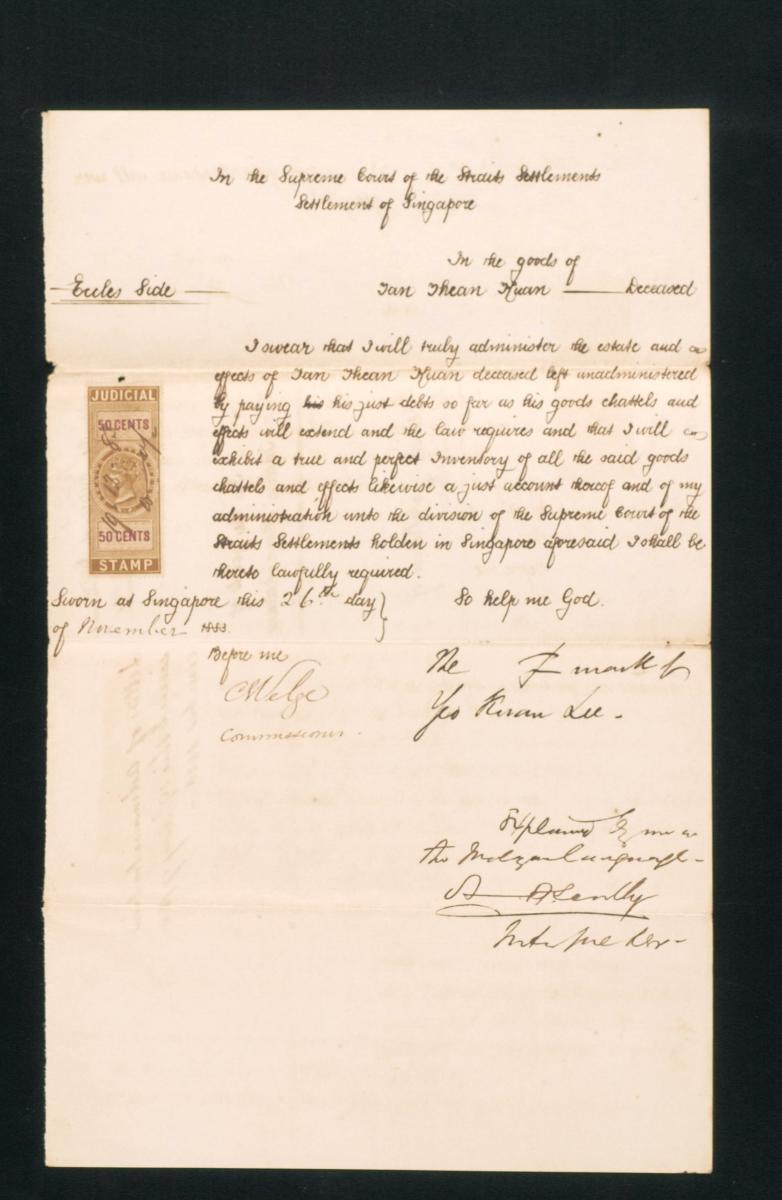 In the Supreme Court of the Straits Settlements
Settlement of Singapore
In the goods of
Eccles Side
Tan Thean Kuan Deceased
I swear that I will truly administer the estate and
effects of Tan Thean Kuan deceased left unadministered
by paying his his just debts so far as his goods chattels and
effects will extend and the law requires and that I will
exhibit a true and perfect Inventory of all the said goods
chattels and effects likewise a just account thereof and of my
administration unto the division of the Supreme Court of the
Straits Settlements holden in Singapore aforesaid I shall be
thereto lawfully required.
JUDICIAL
50 CENTS
50 CENTS
STAMP
Sworn at Singapore this 26th day
of November 1883.
So help me God.
Before me
Commissioner.
The mark of
Yeo Kwan Lee.
Explained by me in
the Malay language
Interpreter